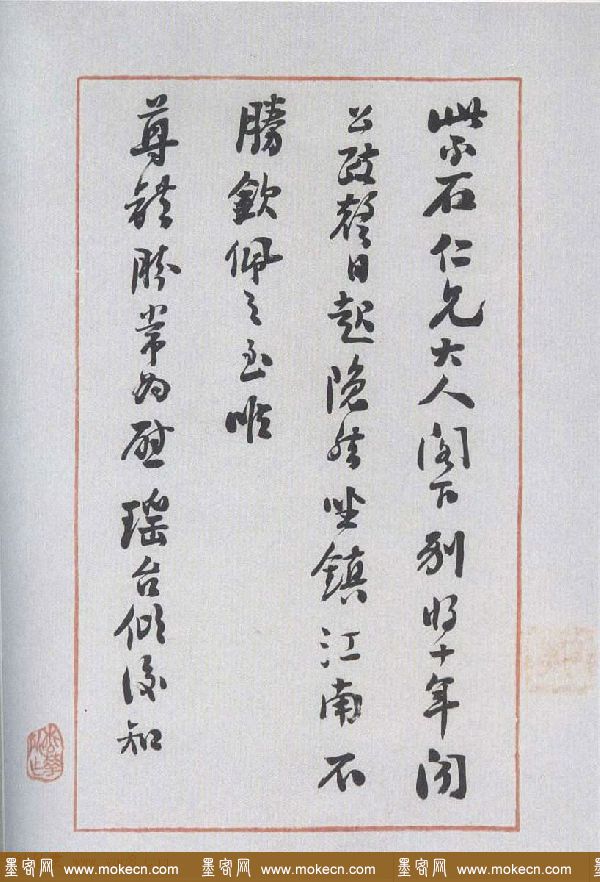 紫石仁兄大人阁下别将十年闻
公政声日起隐然坐镇江南不
勝欽佩之至唯
尊體勝常为慰瑶台倾後知
墨客网 www.mokecn.com 墨客网 www.mokecn.com 墨客网 www.mokecn.com